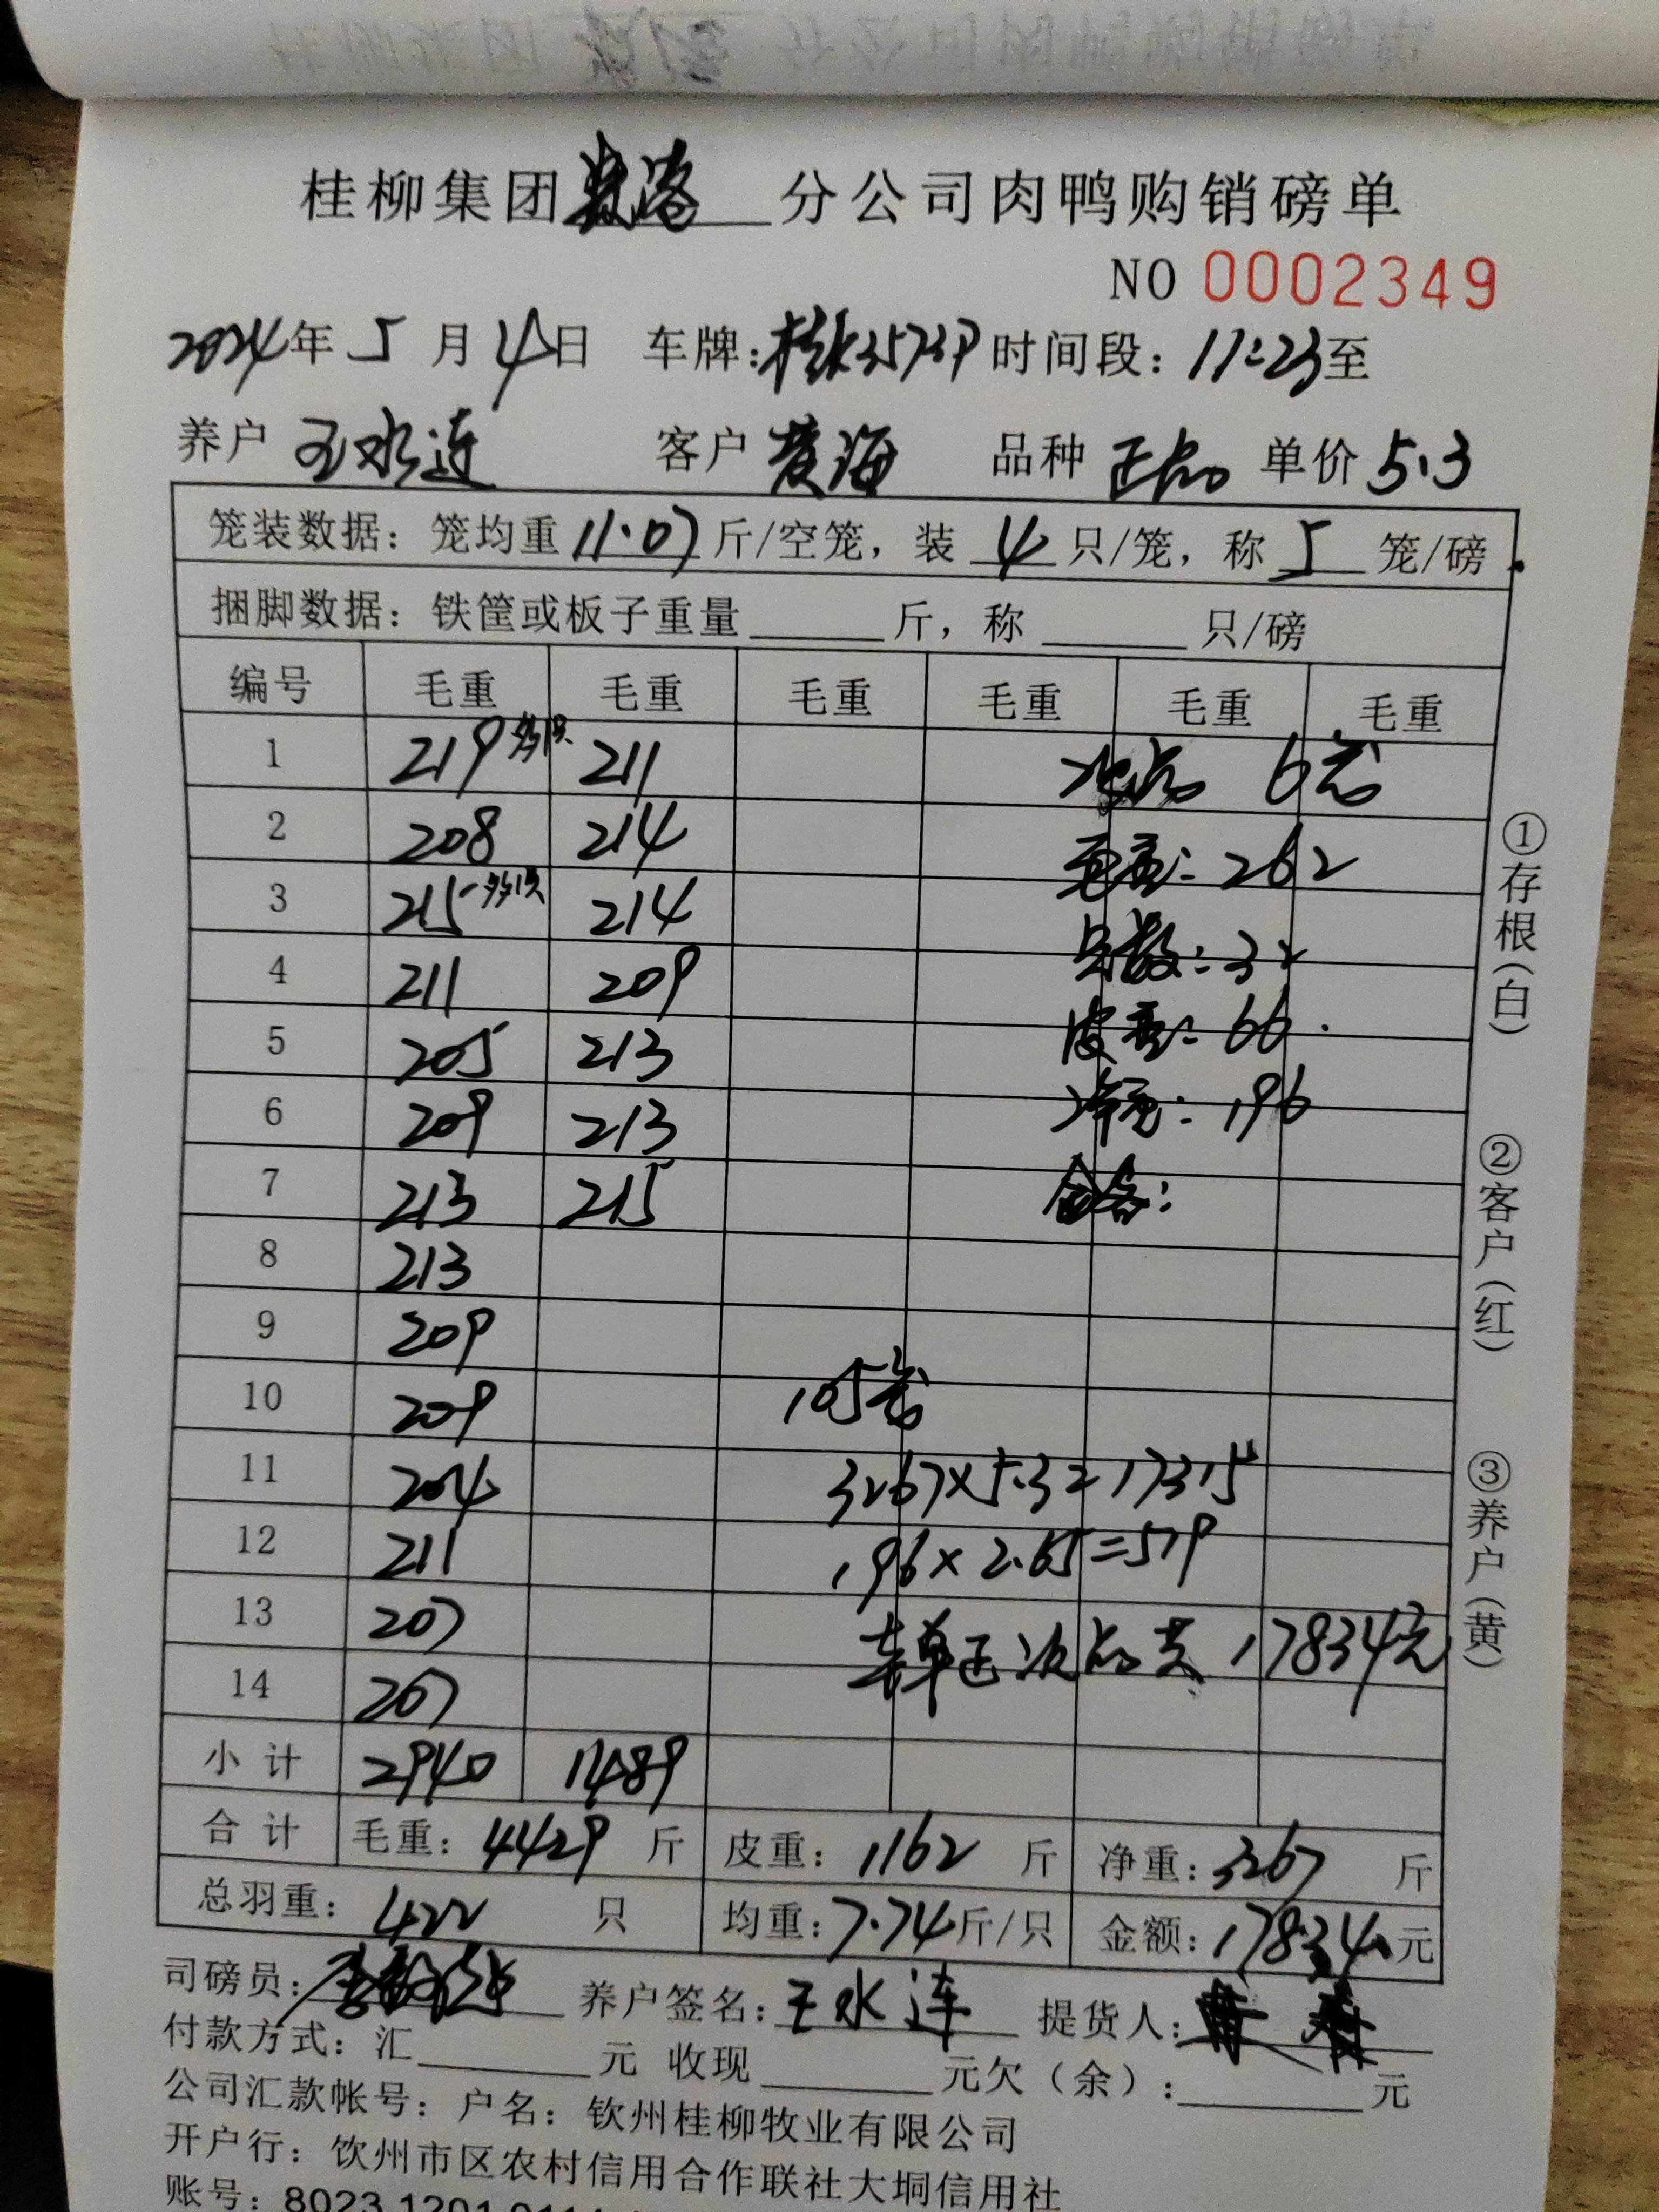 桂柳集团 分公司肉鸭购销磅单
NO 0002349
2024年 5 月 4 日 车牌: 时间段: 11:23至
养户 王水连 客户 黄海 品种 正品 单价 5.3
笼装数据: 笼均重 11.07 斤/空笼, 装 4 只/笼, 称 5 笼/磅
捆脚数据: 铁筐或板子重量 斤, 称 只/磅
编号 毛重 毛重 毛重 毛重 毛重 毛重
1 219 多1只 211 次品 6笼
2 208 214 毛重: 262
3 215-多1只 214 只数: 32
4 211 209 皮重: 66
5 205 213 净重: 196
6 209 213
7 213 215
8 213
9 209
10 209 105笼
11 204 3267×5.3=17315
12 211 196×2.65=519
13 207 本单正次品共 17834元
14 207
小计 2940 1489
合计 毛重: 4429 斤 皮重: 1162 斤 净重: 3267 斤
总羽重: 422 只 均重: 7.74 斤/只 金额: 17834 元
司磅员: 养户签名: 王水连 提货人:
付款方式: 汇 元 收现 元欠(余): 元
公司汇款帐号: 户名: 钦州桂柳牧业有限公司
开户行: 钦州市区农村信用合作联社大垌信用社
账号: 8023 1201
①存根(白)
②客户(红)
③养户(黄)